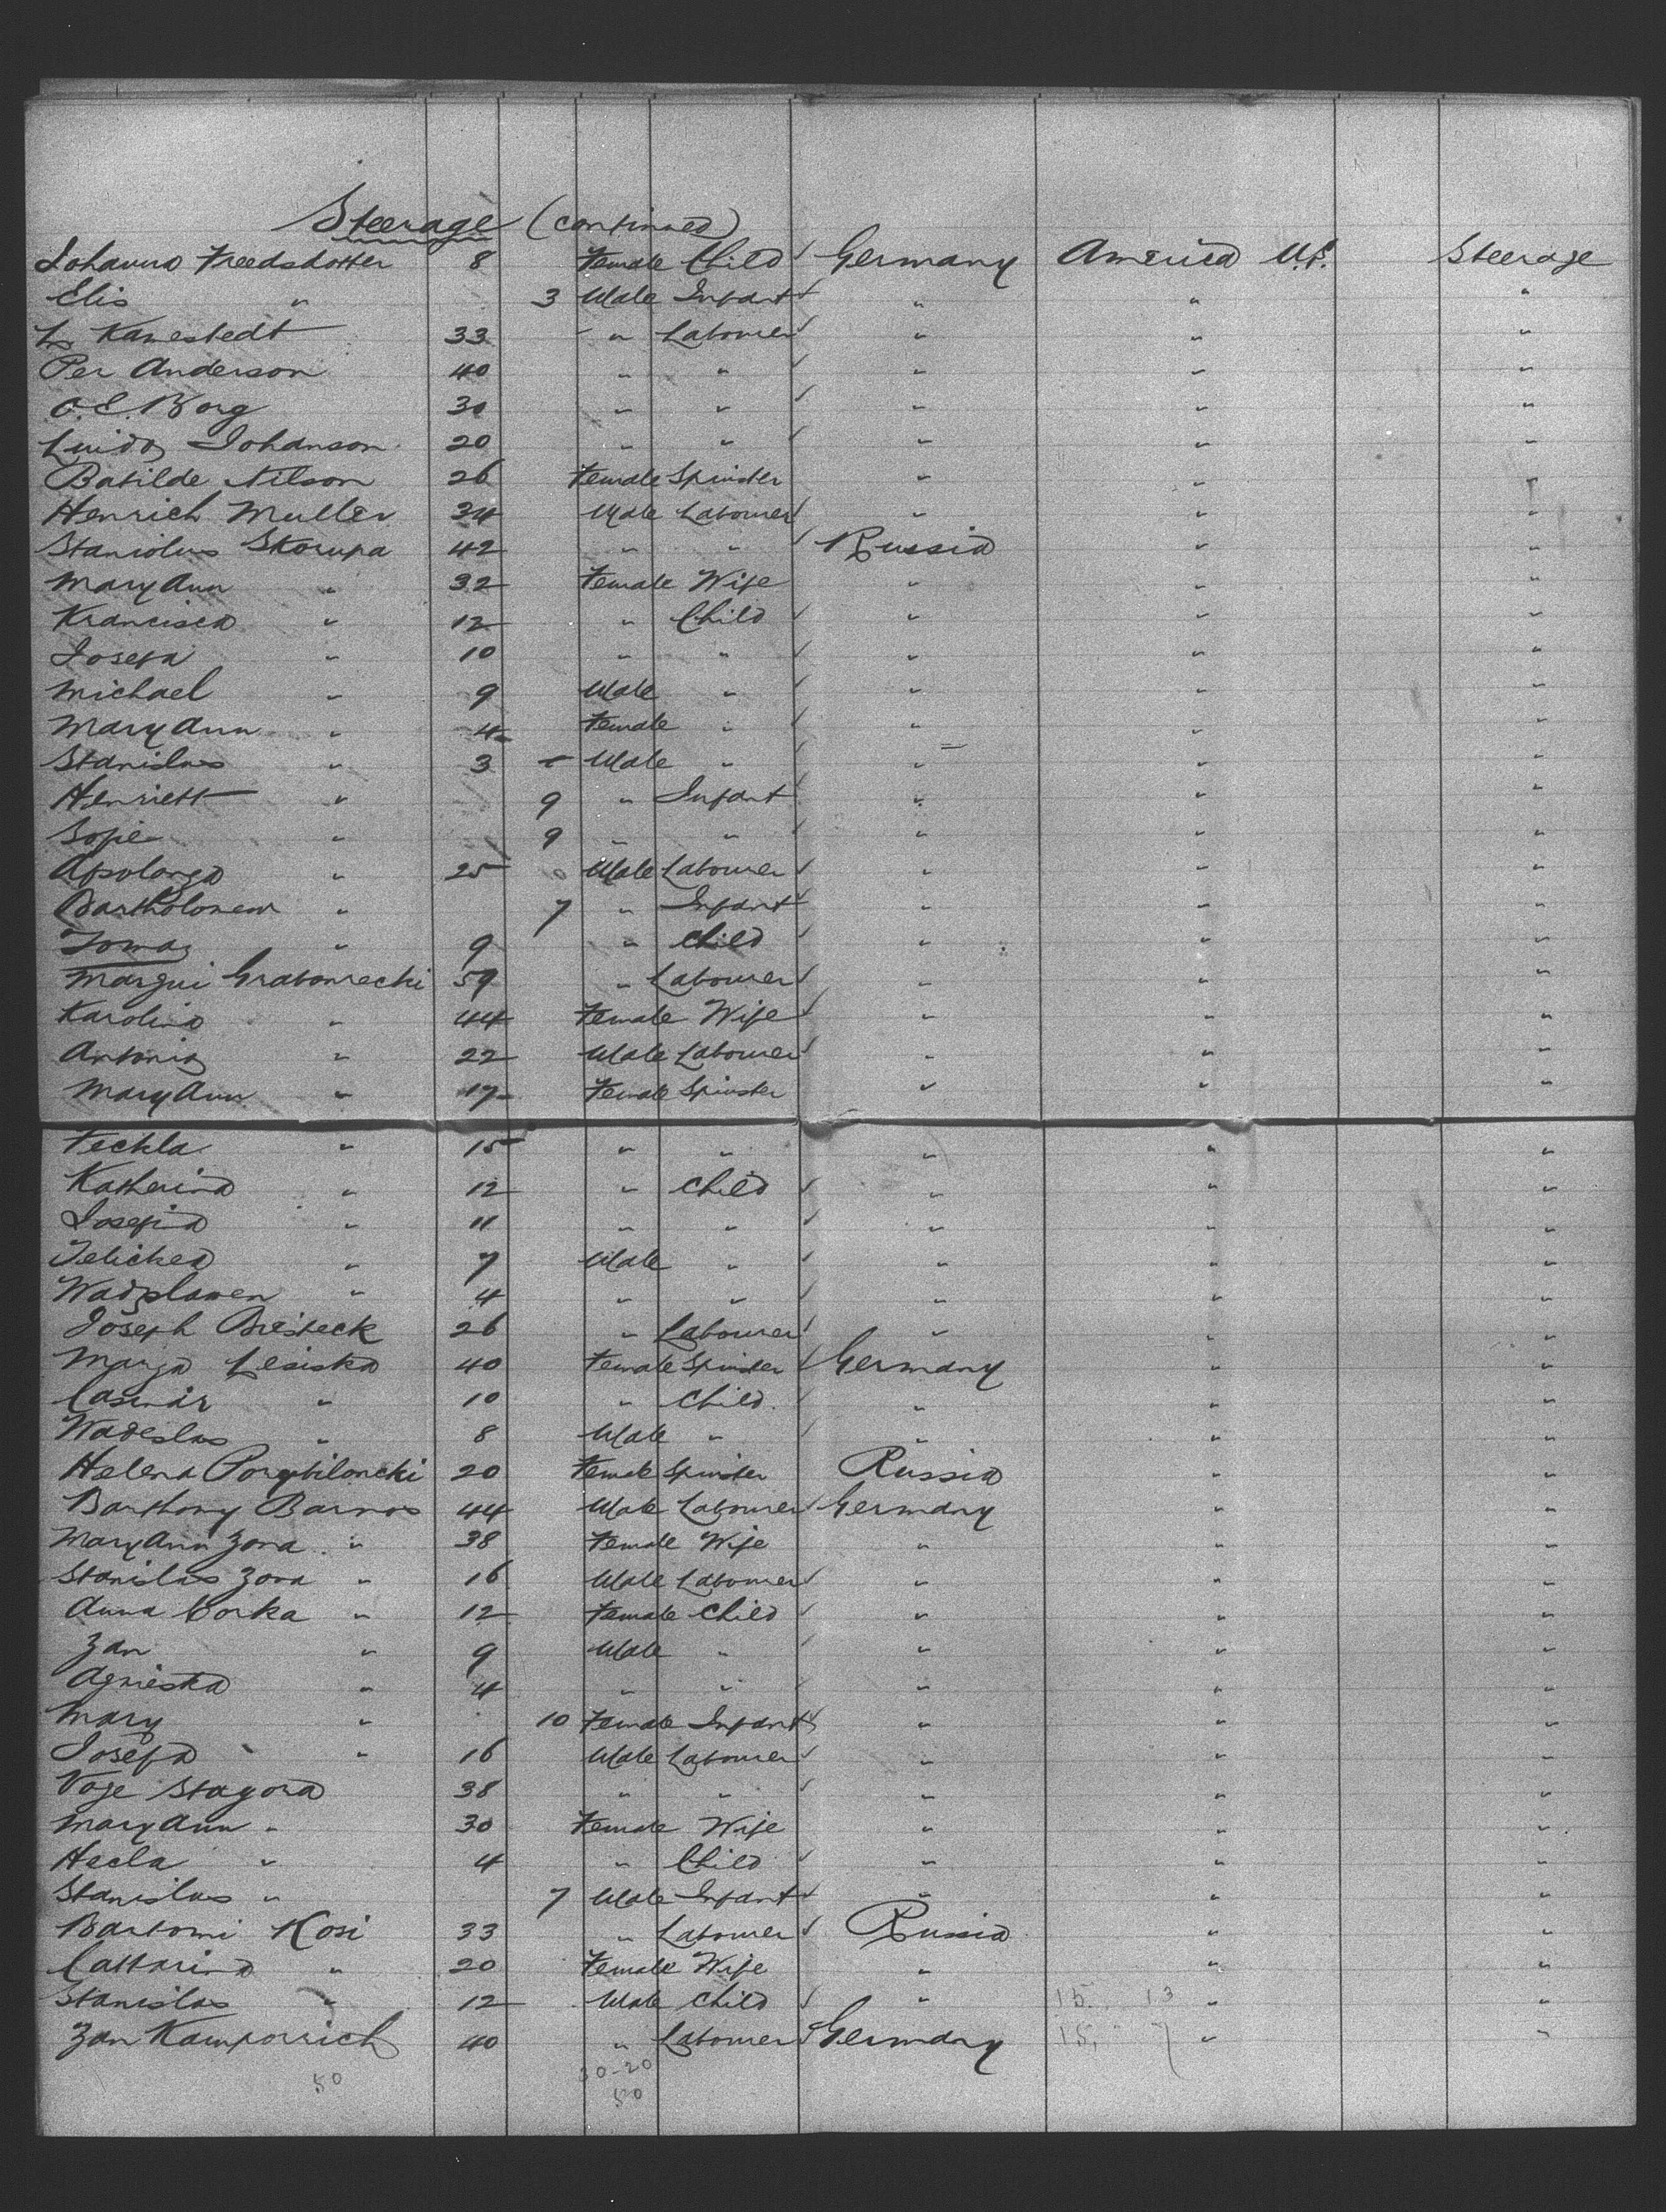 Steerage (continued)
Johanna Freedshotter 8 Female Child Germany America U.S. Steerage
Elis " 3 Male Infant " " "
Kanestedt 33 " Labourer " " "
Per Anderson 40 " " " " "
O.E. Borg 30 " " " " "
Johanson 20 " " " " "
Batilde Nilson 26 Female Spinster " " "
Henrich Muller 34 Male Labourer " " "
Stanislus Skorupa 42 " " Russia " "
Mary Ann " 32 Female Wife " " "
Francisca " 12 " Child " " "
Josefa " 10 " " " " "
Michael " 9 Male " " " "
Mary Ann " 4 Female " " " "
Stanislus " 3 Male " " " "
Henriett " 9 " Infant " " "
Sofie " 9 " " " " "
" 25 Male Labourer " " "
Bartholomew " 7 " Infant " " "
Tomas " 9 " Child " " "
59 " Labourer " " "
Karolina " 44 Female Wife " " "
Antonia " 22 Male Labourer " " "
Mary Ann " 17 Female Spinster " " "
Teckla " 15 " " " " "
Katherina " 12 " Child " " "
Josefia " 11 " " " " "
" 7 Male " " " "
" 4 " " " " "
Joseph Bresteck 26 " Labourer " " "
Marga Lesiska 40 Female Spinster Germany " "
Casmir " 10 " Child " " "
Wadeslas " 8 Male " " " "
Helena 20 Female Spinster Russia " "
Barthony Barnos 44 Male Labourer Germany " "
Mary Ann Zona " 38 Female Wife " " "
Stanislas Zona " 16 Male Labourer " " "
Anna Corka " 12 Female Child " " "
Zan " 9 Male " " " "
Agnieska " 4 " " " " "
Mary " 10 Female Infant " " "
Josefa " 16 Male Labourer " " "
Voje Stagora 38 " " " " "
Mary Ann " 30 Female Wife " " "
Hecla " 4 " Child " " "
Stanislus " 7 Male Infant " " "
Bartomi Kosi 33 " Labourer Russia " "
Cattarina " 20 Female Wife " " "
Stanislas " 12 Male Child " 15. 13 " "
Zan 40 " Labourer Germany 15. 7 " "
50 30-20
50